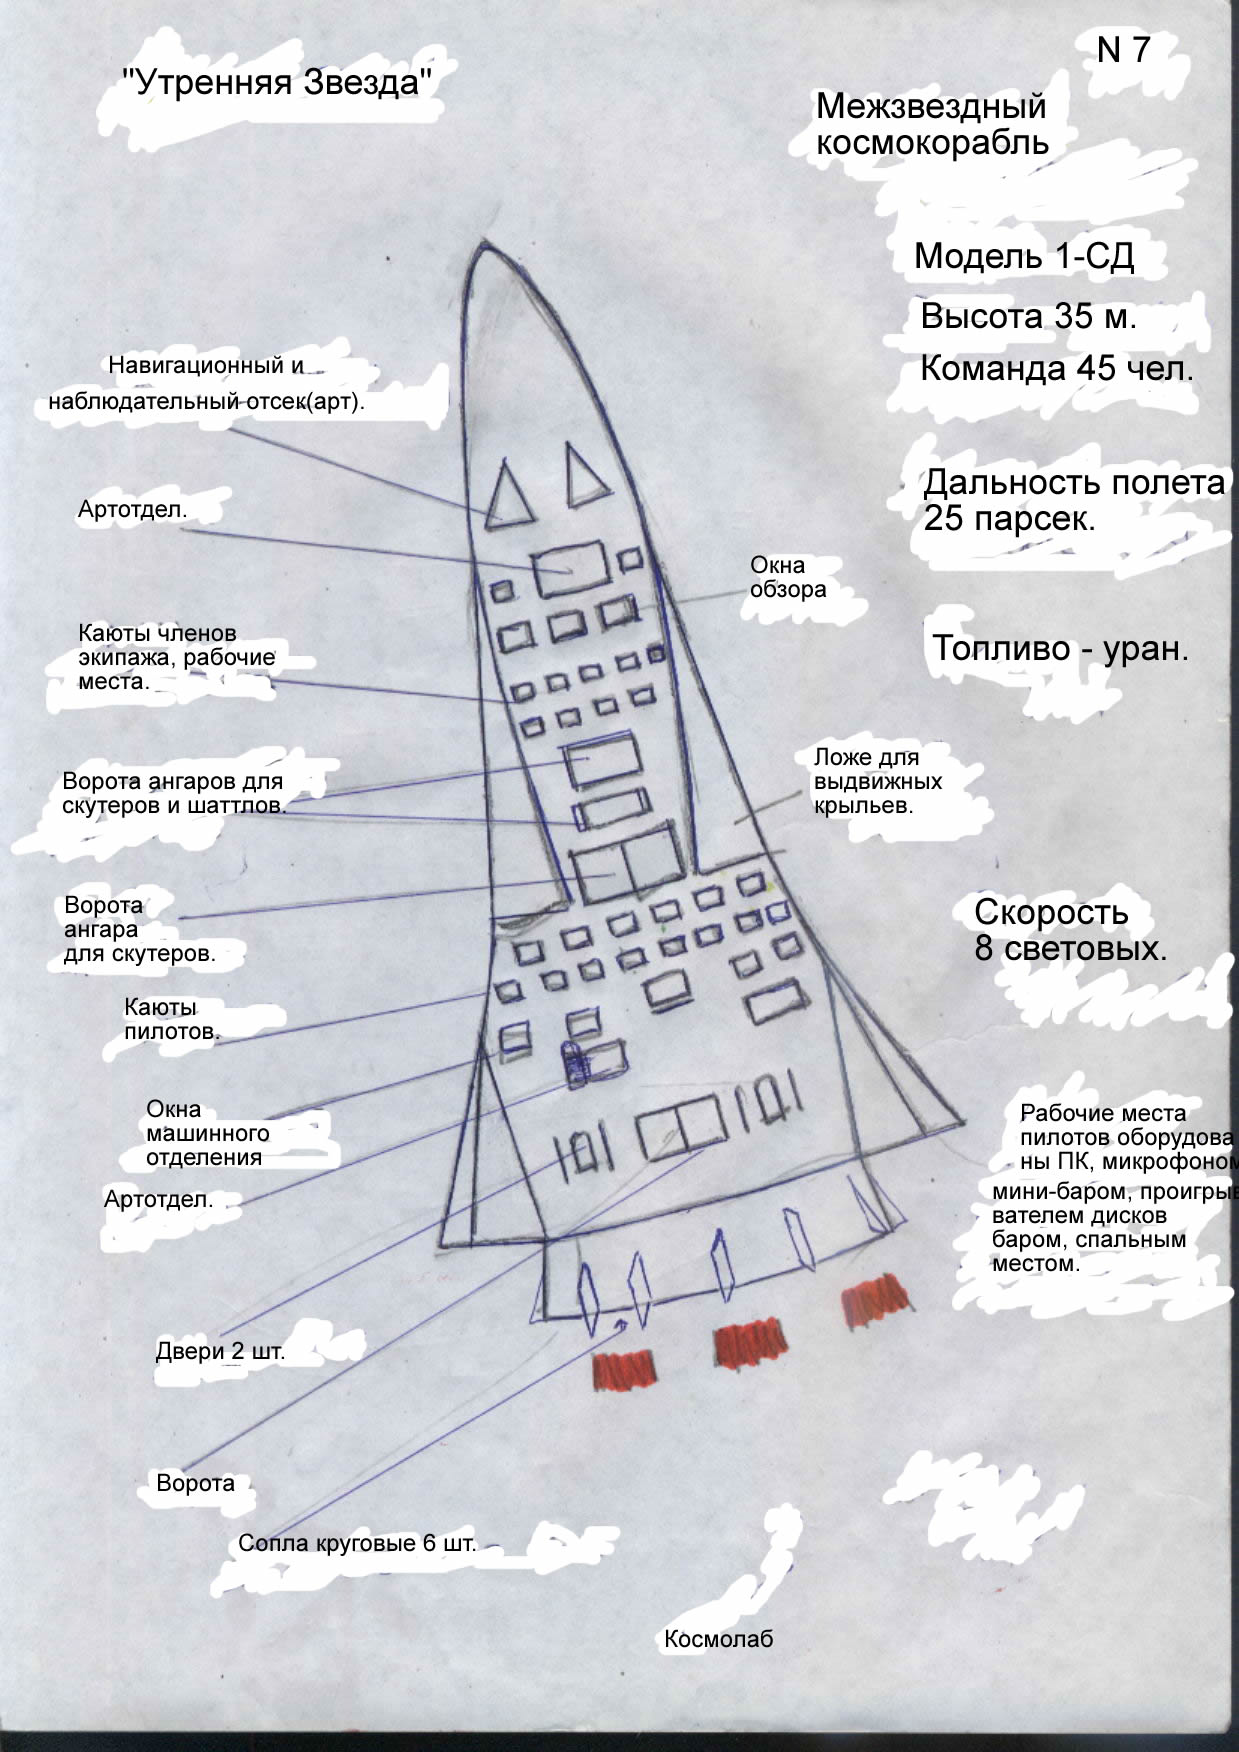 "Утренняя Звезда"
N 7
Межзвездный
космокорабль
Модель 1-СД
Высота 35 м.
Команда 45 чел.
Навигационный и
наблюдательный отсек(арт).
Дальность полета
25 парсек.
Артотдел.
Окна
обзора
Каюты членов
экипажа, рабочие
места.
Топливо - уран.
Ворота ангаров для
скутеров и шаттлов.
Ложе для
выдвижных
крыльев.
Ворота
ангара
для скутеров.
Скорость
8 световых.
Каюты
пилотов.
Окна
машинного
отделения
Артотдел.
Рабочие места
пилотов оборудова
ны ПК, микрофоном
мини-баром, проигрыв
вателем дисков
баром, спальным
местом.
Двери 2 шт.
Ворота
Сопла круговые 6 шт.
Космолаб